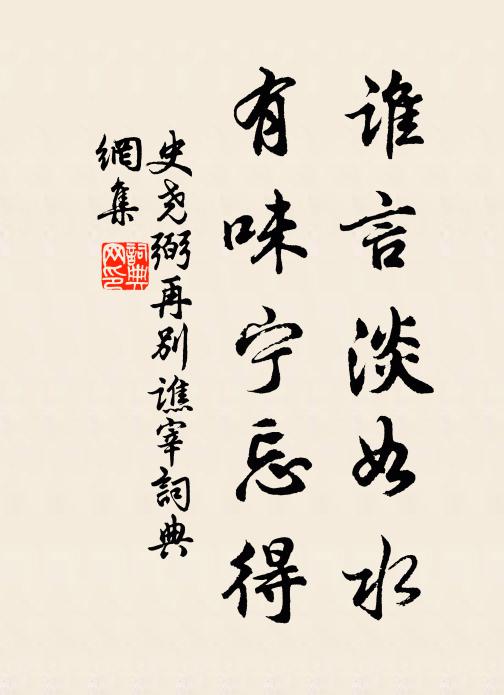 谁言淡如水
有味宁忘得
史尧弼再别譙宰詞典
網集
詞典
网印